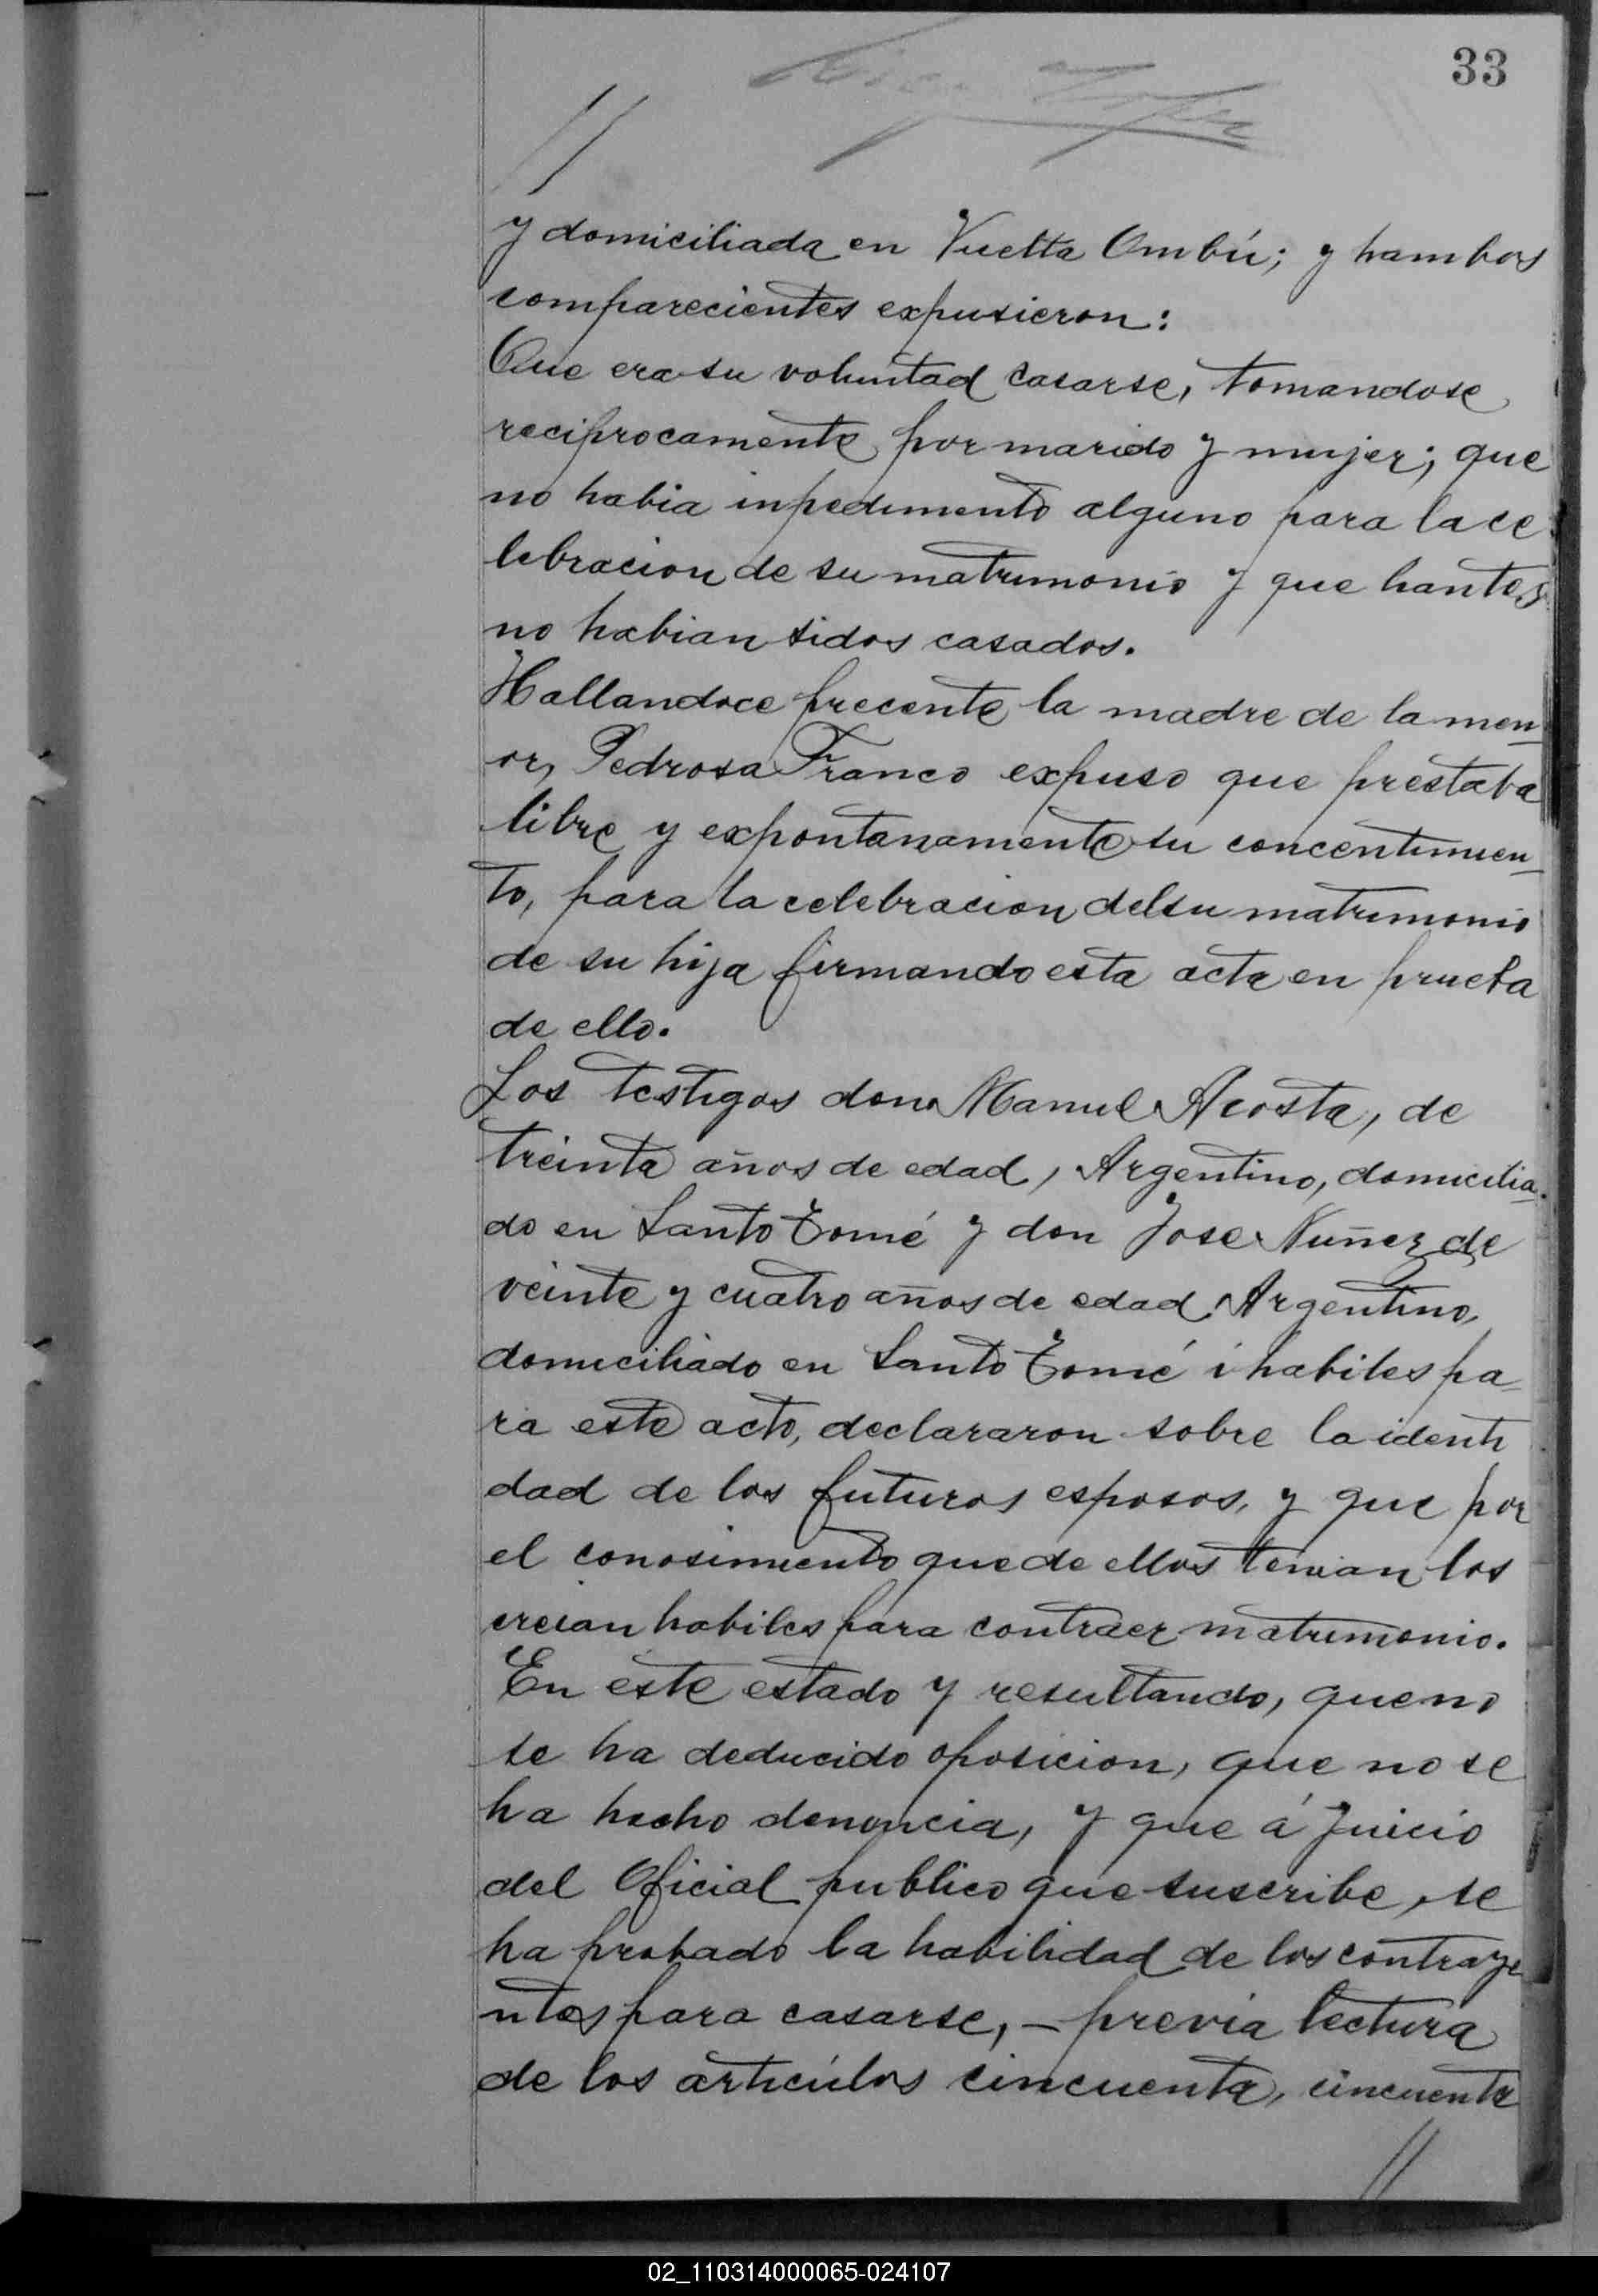 33
//
y domiciliada en Vuelta Ombú; y hambos
comparecientes expusieron:
Que era su voluntad casarse, tomandose
reciprocamente por marido y mujer; que
no habia inpedimento alguno para la ce
lebracion de su matrimonio y que hantes
no habian sidos casados.
Hallandoce precente la madre de la men
or, Pedrosa Franco expuso que prestaba
libre y expontanamente su concentimien
to, para la celebracion del su matrimonio
de su hija firmando esta acta en prueba
de ello.
Los testigos don Manuel Acosta, de
treinta años de edad, Argentino, domicilia
do en Santo Tomé y don Jose Nuñez de
veinte y cuatro años de edad Argentino,
domiciliado en Santo Tomé i habiles pa
ra este acto, declararon sobre la identi
dad de los futuros esposos, y que por
el conosimiento que de ellos tenian los
creian habiles para contraer matrimonio.
En este estado y resultando, que no
se ha deducido oposicion, que no se
ha hecho denuncia, y que á juicio
del Oficial publico que suscribe, se
ha probado la habilidad de los contraye
ntes para casarse, - previa lectura
de los artículos cincuenta, cincuenta
//
02_110314000065-024107